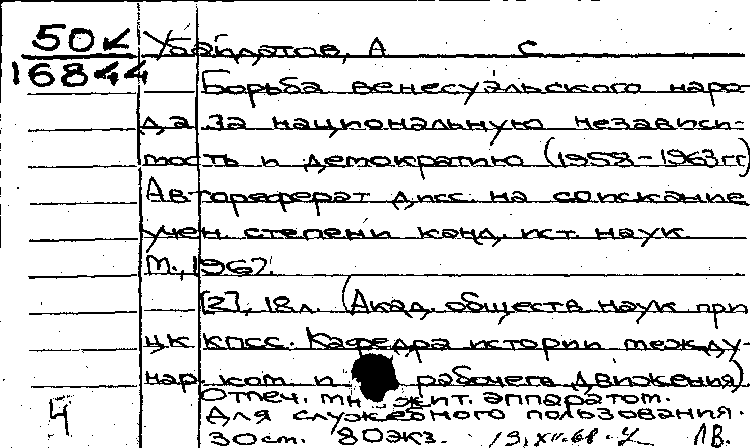 50к
16844
Убайдатов, А С
Борьба венесуэльского наро-
да за национальную независи-
мость и демократию (1958-1963 гг)
Автореферат дисс. на соискание
учен. степени канд. ист. наук.
М., 1967.
[2], 18 л. (Акад. обществ наук при
ЦК КПСС. Кафедра истории между-
нар. ком. и рабочего движения)
Отпеч. множит. аппаратом.
Для служебного пользования.
30 см. 80 экз.
4